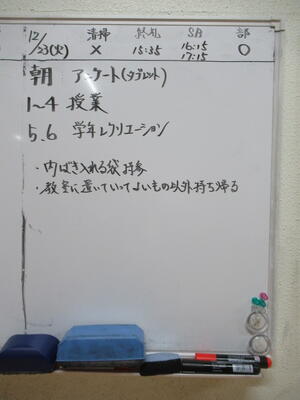 12/23(火) 清掃 × 終礼 15:35 SB 16:15 17:15 部 ○
朝 アンケート(タブレット)
1~4 授業
5.6 学年レクリエーション
・内ばき入れる袋持参
・教室に置いていってよいもの以外持ち帰る